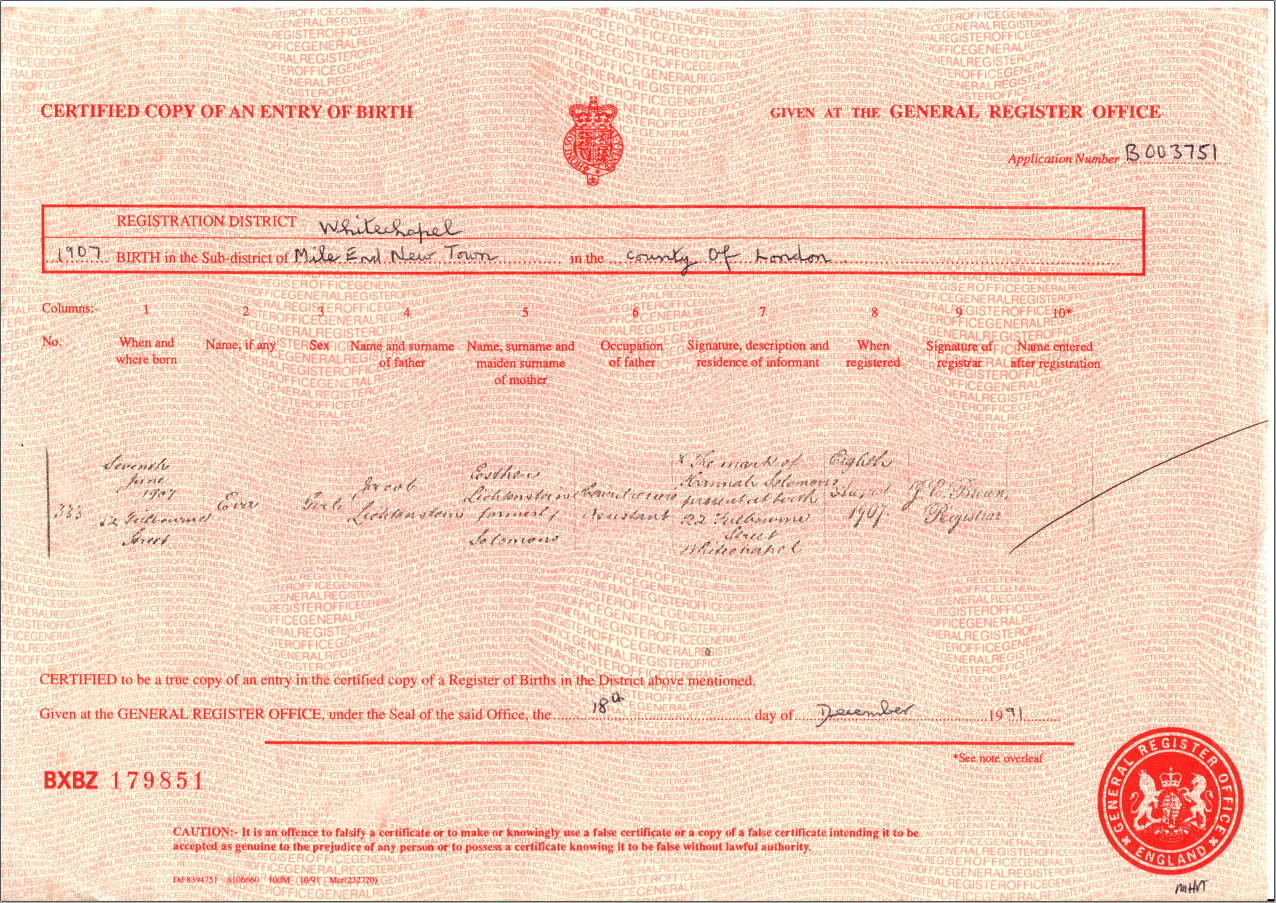 CERTIFIED COPY OF AN ENTRY OF BIRTH
GIVEN AT THE GENERAL REGISTER OFFICE
Application Number B003751
REGISTRATION DISTRICT Whitechapel
1907 BIRTH in the Sub-district of Mile End New Town in the County Of London
Columns:- 1 2 3 4 5 6 7 8 9 10*
No. When and where born Name, if any Sex Name and surname of father Name, surname and maiden surname of mother Occupation of father Signature, description and residence of informant When registered Signature of registrar Name entered after registration
383
Seventh
June
1907
Street
Eva
Girl
Jacob
Lichtenstein
Esther
Lichtenstein
formerly
Solomons
Assistant
X The mark of
Hannah Solomons
present at birth
22 Fulbourne
Street
Whitechapel
Eighth
1907
Registrar
CERTIFIED to be a true copy of an entry in the certified copy of a Register of Births in the District above mentioned.
Given at the GENERAL REGISTER OFFICE, under the Seal of the said Office, the 18th day of December 1991
*See note overleaf
BXBZ 179851
CAUTION:- It is an offence to falsify a certificate or to make or knowingly use a false certificate or a copy of a false certificate intending it to be
accepted as genuine to the prejudice of any person or to possess a certificate knowing it to be false without lawful authority.
Dd 8394751 8106660 100M 10/91 Mcr(232720)
GENERAL REGISTER OFFICE
ENGLAND